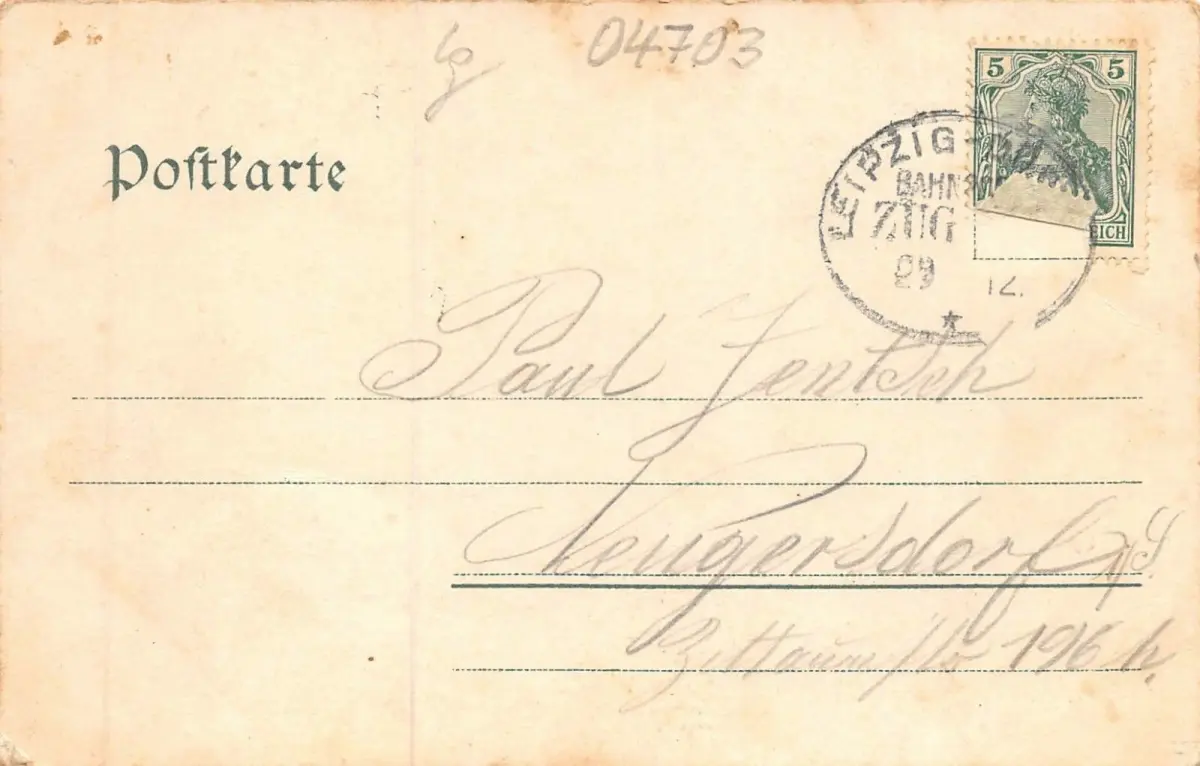 04703
5 5
Postkarte
LEIPZIG
BAHN
ZUG
29 12.
REICH
Paul Jentsch
Neugersdorf i/S.
Zittauerstr 196 b.